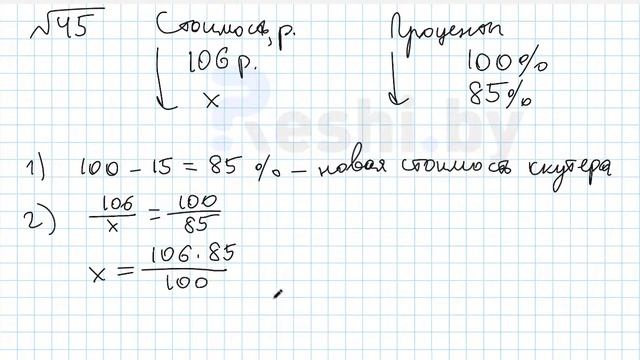 √45 Стоимость, р. Проценты
106 р. 100%
x 85%
Reshi.by
1) 100 - 15 = 85 % - новая стоимость скутера
2) 106/x = 100/85
x = 106·85/100